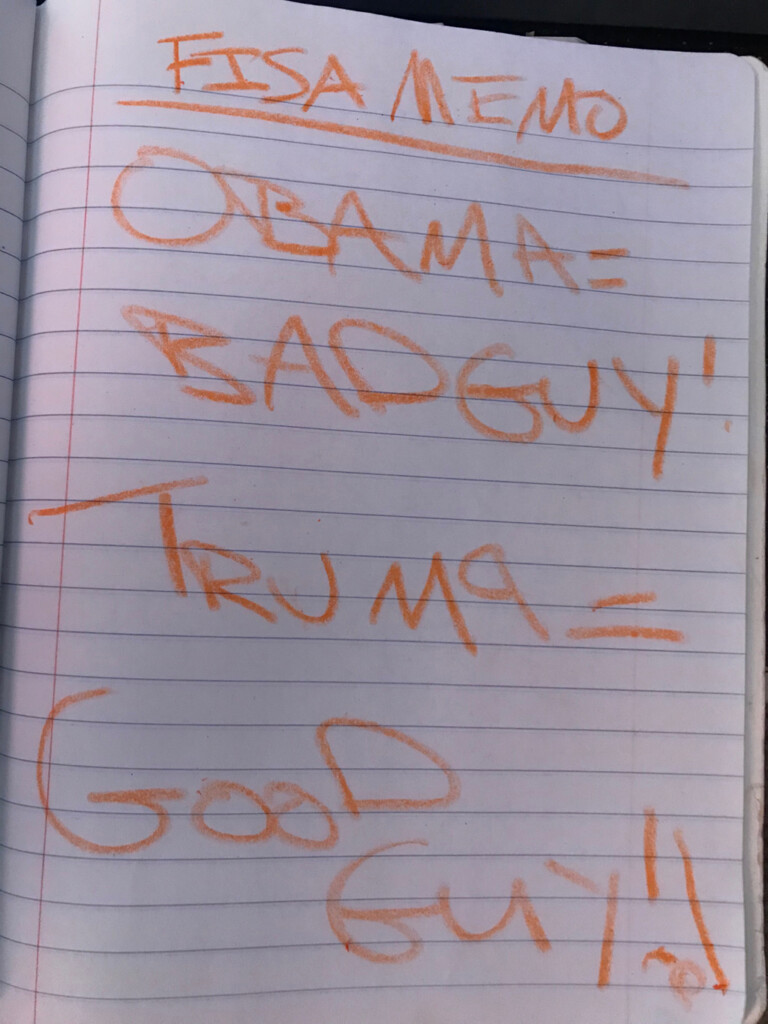 FISA MEMO
OBAMA=
BAD GUY!
TRUMP =
GOOD
GUY!!